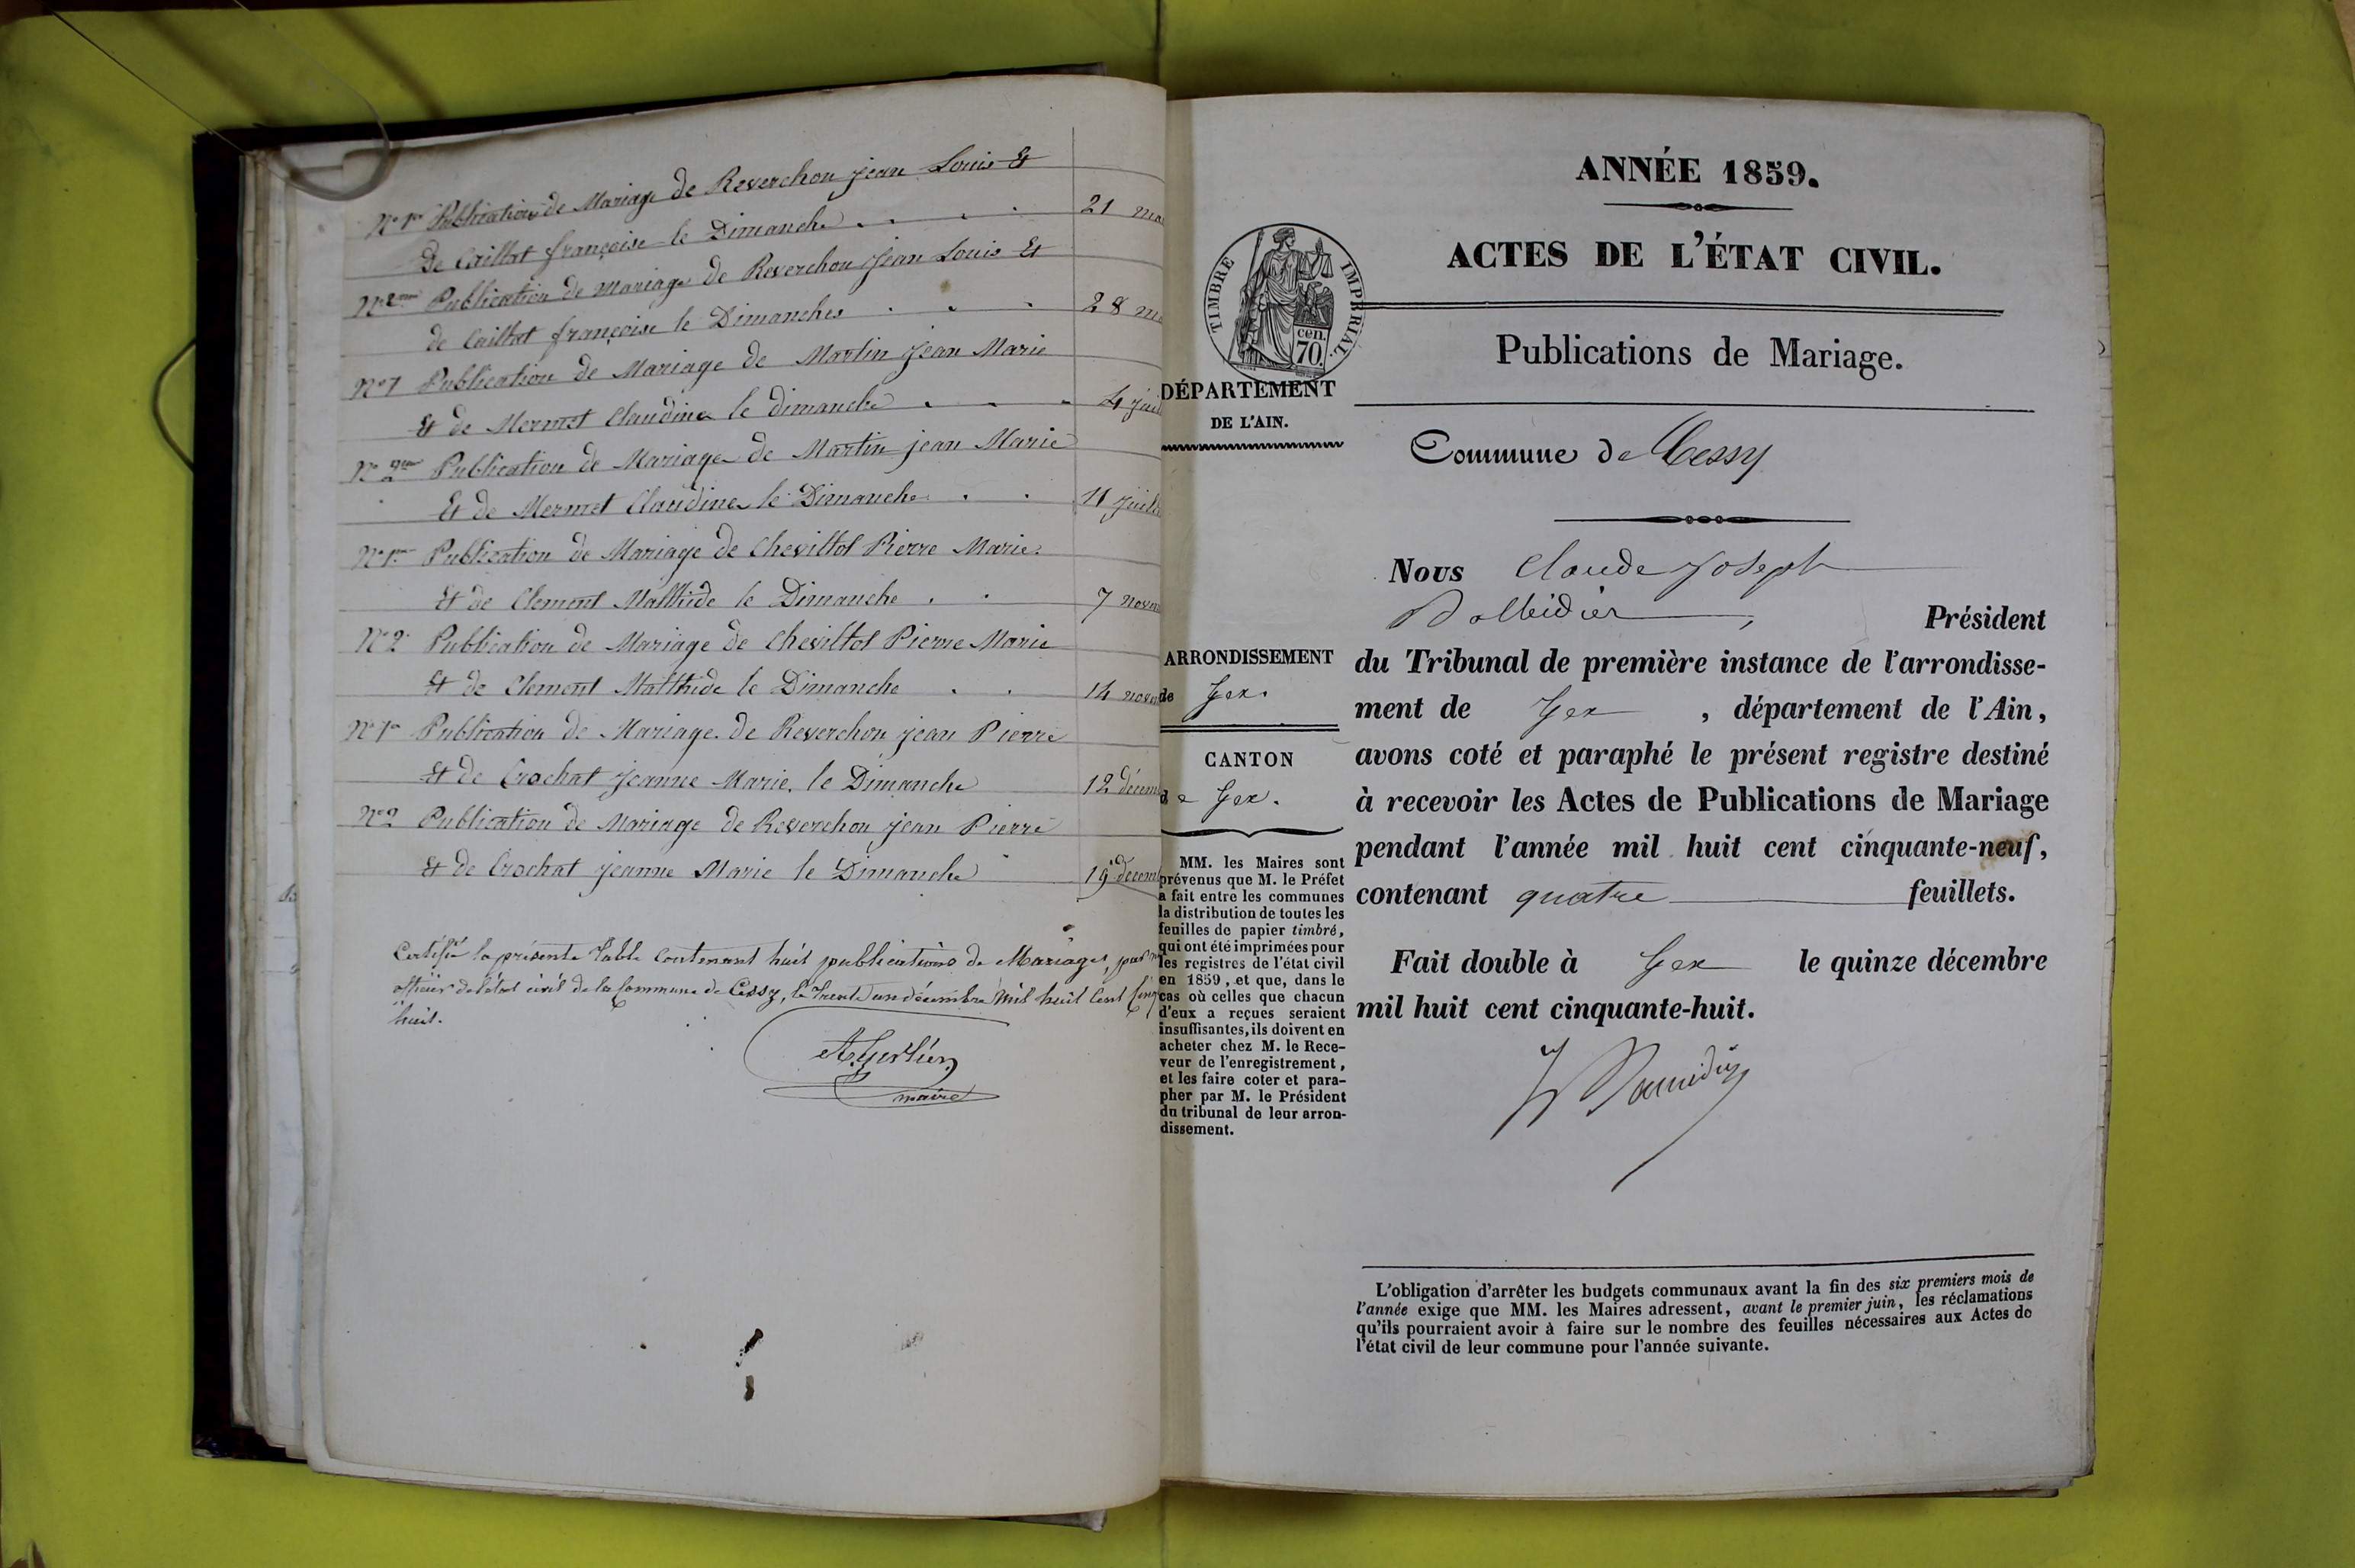 N° 1re Publication de Mariage de Reverchon jean Louis Et
de Caillat françoise le Dimanche . . . 21 ma
N° 2me Publication de Mariage de Reverchon Jean Louis Et
de Caillat françoise le Dimanches . . . 28 ma
N° 1 Publication de Mariage de Martin Jean Marie
Et de Mermet Claudine le dimanche . . . 4 juil
N° 2me Publication de Mariage de Martin jean Marie
Et de Mermet Claudine le Dimanche . . 11 juille
N° 1re Publication de Mariage de Chevillot Pierre Marie
Et de Clement Mathide le Dimanche . . 7 novem
N° 2 Publication de Mariage de Chevillot Pierre Marie
Et de Clement Mathide le Dimanche . . 14 novem
N° 1re Publication de Mariage de Reverchon jean Pierre
Et de Crochat jeanne Marie le Dimanche 12 décem
N° 2 Publication de Mariage de Reverchon jean Pierre
Et de Crochat jeanne Marie le Dimanche 19 décem
Certifié la présente Table Contenant huit publications de Mariages, par
officier de l'état civil de la Commune de Cessy, le Trente un décembre mil huit Cent Cinq
huit.
maire
ANNÉE 1859.
ACTES DE L'ÉTAT CIVIL.
TIMBRE IMPÉRIAL.
cen.
70
Publications de Mariage.
DÉPARTEMENT
DE L'AIN.
Commune de Cessy
Nous Claude Joseph
Président
ARRONDISSEMENT
de Gex.
CANTON
de Gex.
MM. les Maires sont
prévenus que M. le Préfet
a fait entre les communes
la distribution de toutes les
feuilles de papier timbré,
qui ont été imprimées pour
les registres de l'état civil
en 1859, et que, dans le
cas où celles que chacun
d'eux a reçues seraient
insuffisantes, ils doivent en
acheter chez M. le Rece-
veur de l'enregistrement,
et les faire coter et para-
pher par M. le Président
du tribunal de leur arron-
dissement.
du Tribunal de première instance de l'arrondisse-
ment de Gex , département de l'Ain,
avons coté et paraphé le présent registre destiné
à recevoir les Actes de Publications de Mariage
pendant l'année mil huit cent cinquante-neuf,
contenant quatre feuillets.
Fait double à Gex le quinze décembre
mil huit cent cinquante-huit.
L'obligation d'arrêter les budgets communaux avant la fin des six premiers mois de
l'année exige que MM. les Maires adressent, avant le premier juin, les réclamations
qu'ils pourraient avoir à faire sur le nombre des feuilles nécessaires aux Actes de
l'état civil de leur commune pour l'année suivante.